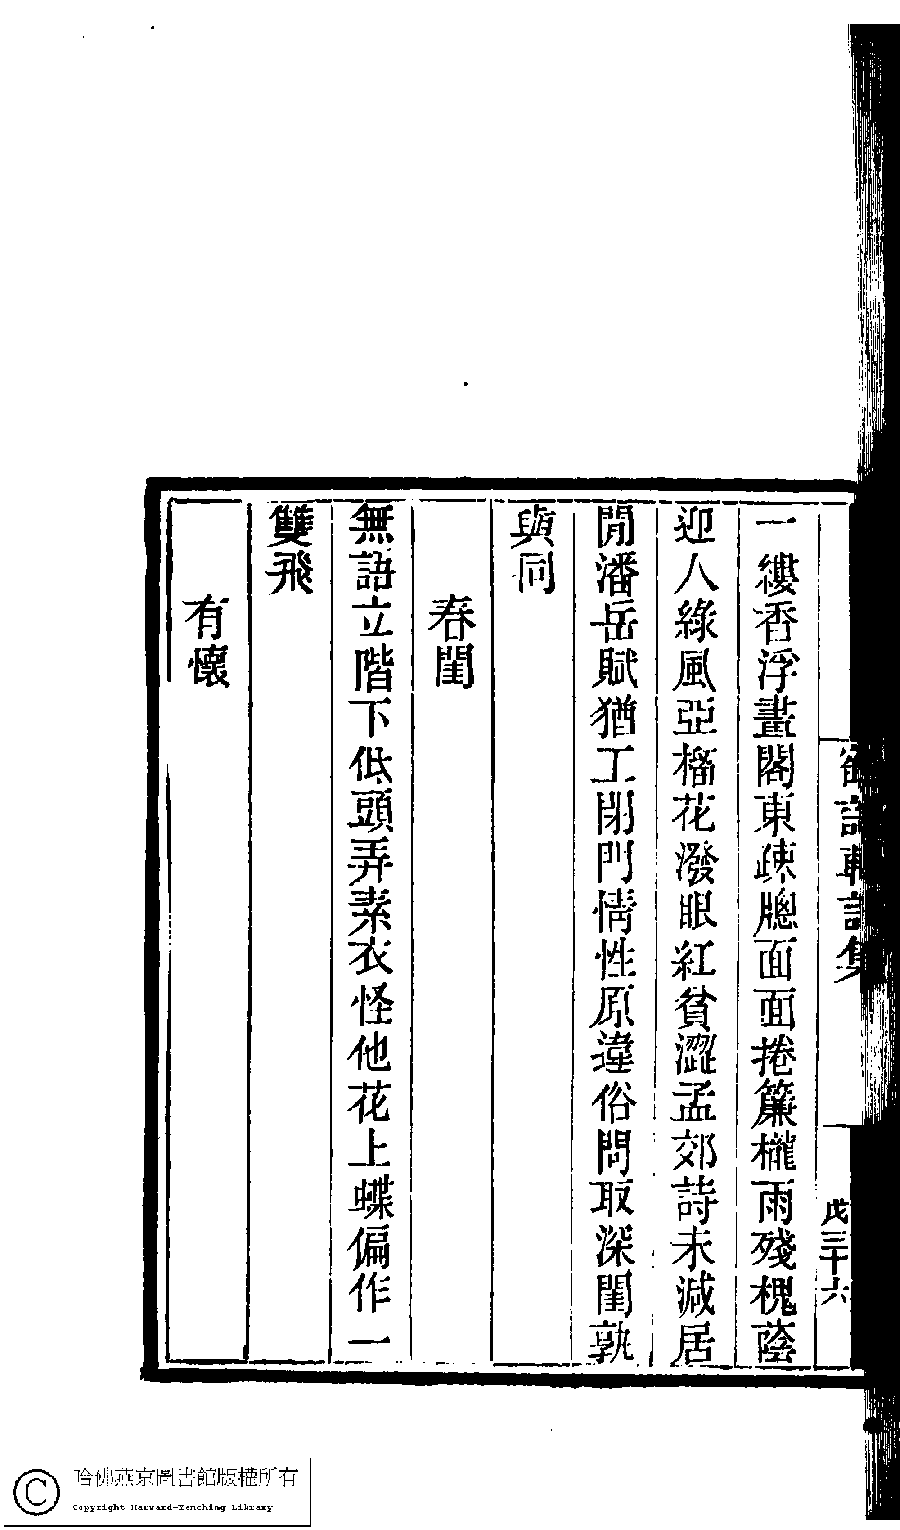 詩集
戊三十六
一縷香浮畫閣東疎牕面面捲簾櫳雨殘槐蔭
迎人綠風亞橊花潑眼紅貧澀孟郊詩未減居
閒潘岳賦猶工閉門情性原違俗問取深閨孰
與同
春閨
無語立階下低頭弄素衣怪他花上蝶偏作一
雙飛
有懷
哈佛燕京圖書館版權所有
Copyright Harvard-Yenching Library